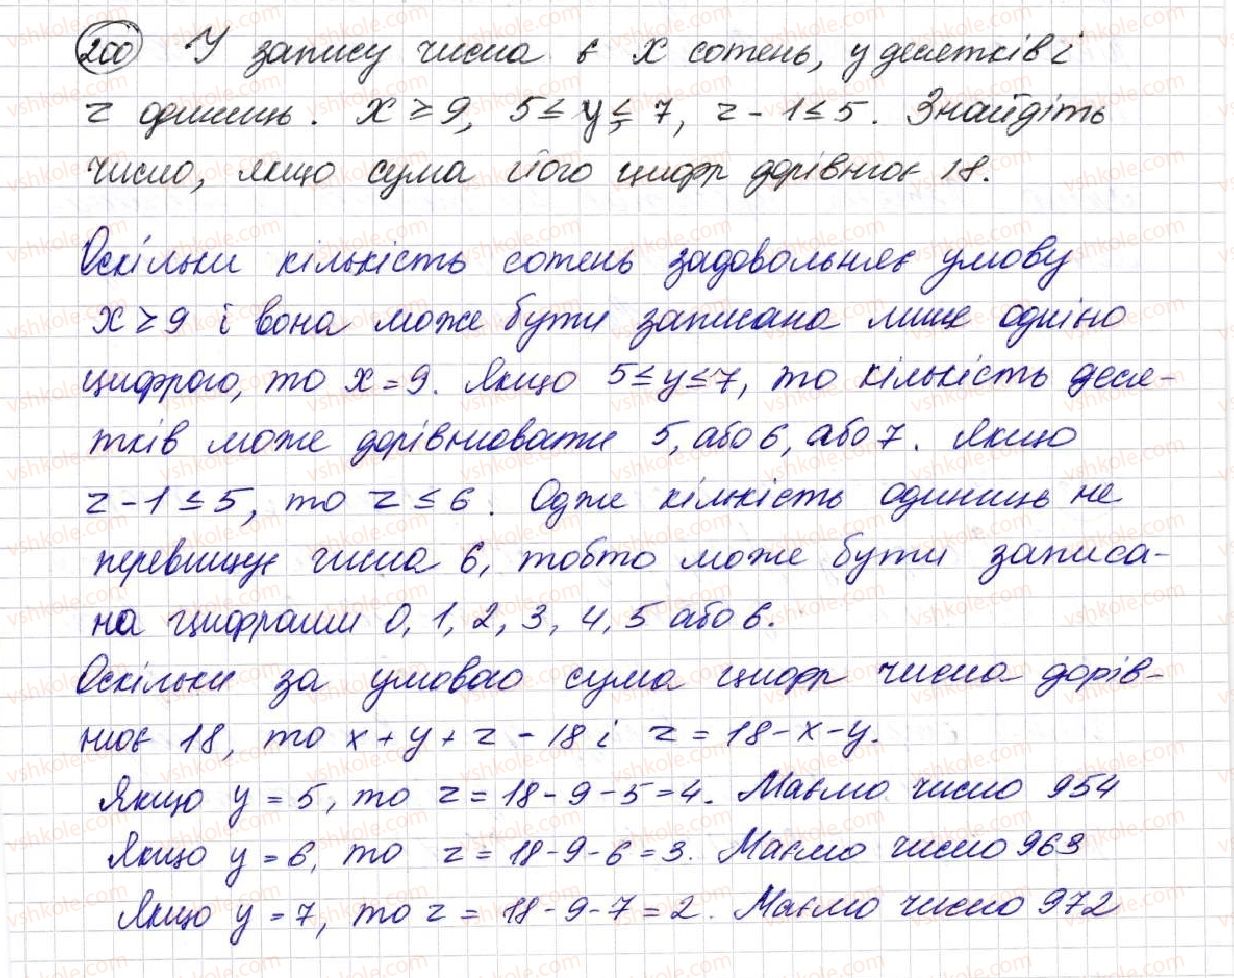 200 У запису числа є x сотень, y десятків і
z одиниць. x ≥ 9, 5 ≤ y ≤ 7, z - 1 ≤ 5. Знайдіть
число, якщо сума його цифр дорівнює 18.
Оскільки кількість сотень задовольняє умову
x ≥ 9 і вона може бути записана лише однією
цифрою, то x = 9. Якщо 5 ≤ y ≤ 7, то кількість деся-
тків може дорівнювати 5, або 6, або 7. Якщо
z - 1 ≤ 5, то z ≤ 6. Отже кількість одиниць не
перевищує числа 6, тобто може бути записа-
на цифрами 0, 1, 2, 3, 4, 5 або 6.
Оскільки за умовою сума цифр числа дорів-
нює 18, то x + y + z - 18 і z = 18 - x - y.
Якщо y = 5, то z = 18 - 9 - 5 = 4. Маємо число 954
Якщо y = 6, то z = 18 - 9 - 6 = 3. Маємо число 963
Якщо y = 7, то z = 18 - 9 - 7 = 2. Маємо число 972